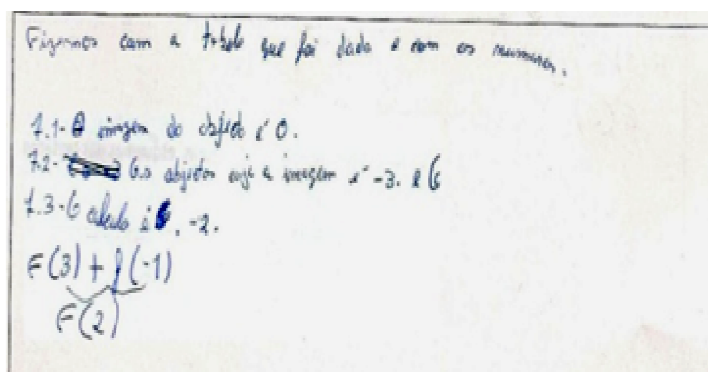 Fizemos com a tabela que foi dada e com os numeros.
7.1- A imagem do objeto é 0.
7.2- Os objetos cuja a imagem é -3. e 6
7.3- O calculo é , -2.
F(3) + f(-1)
F(2)